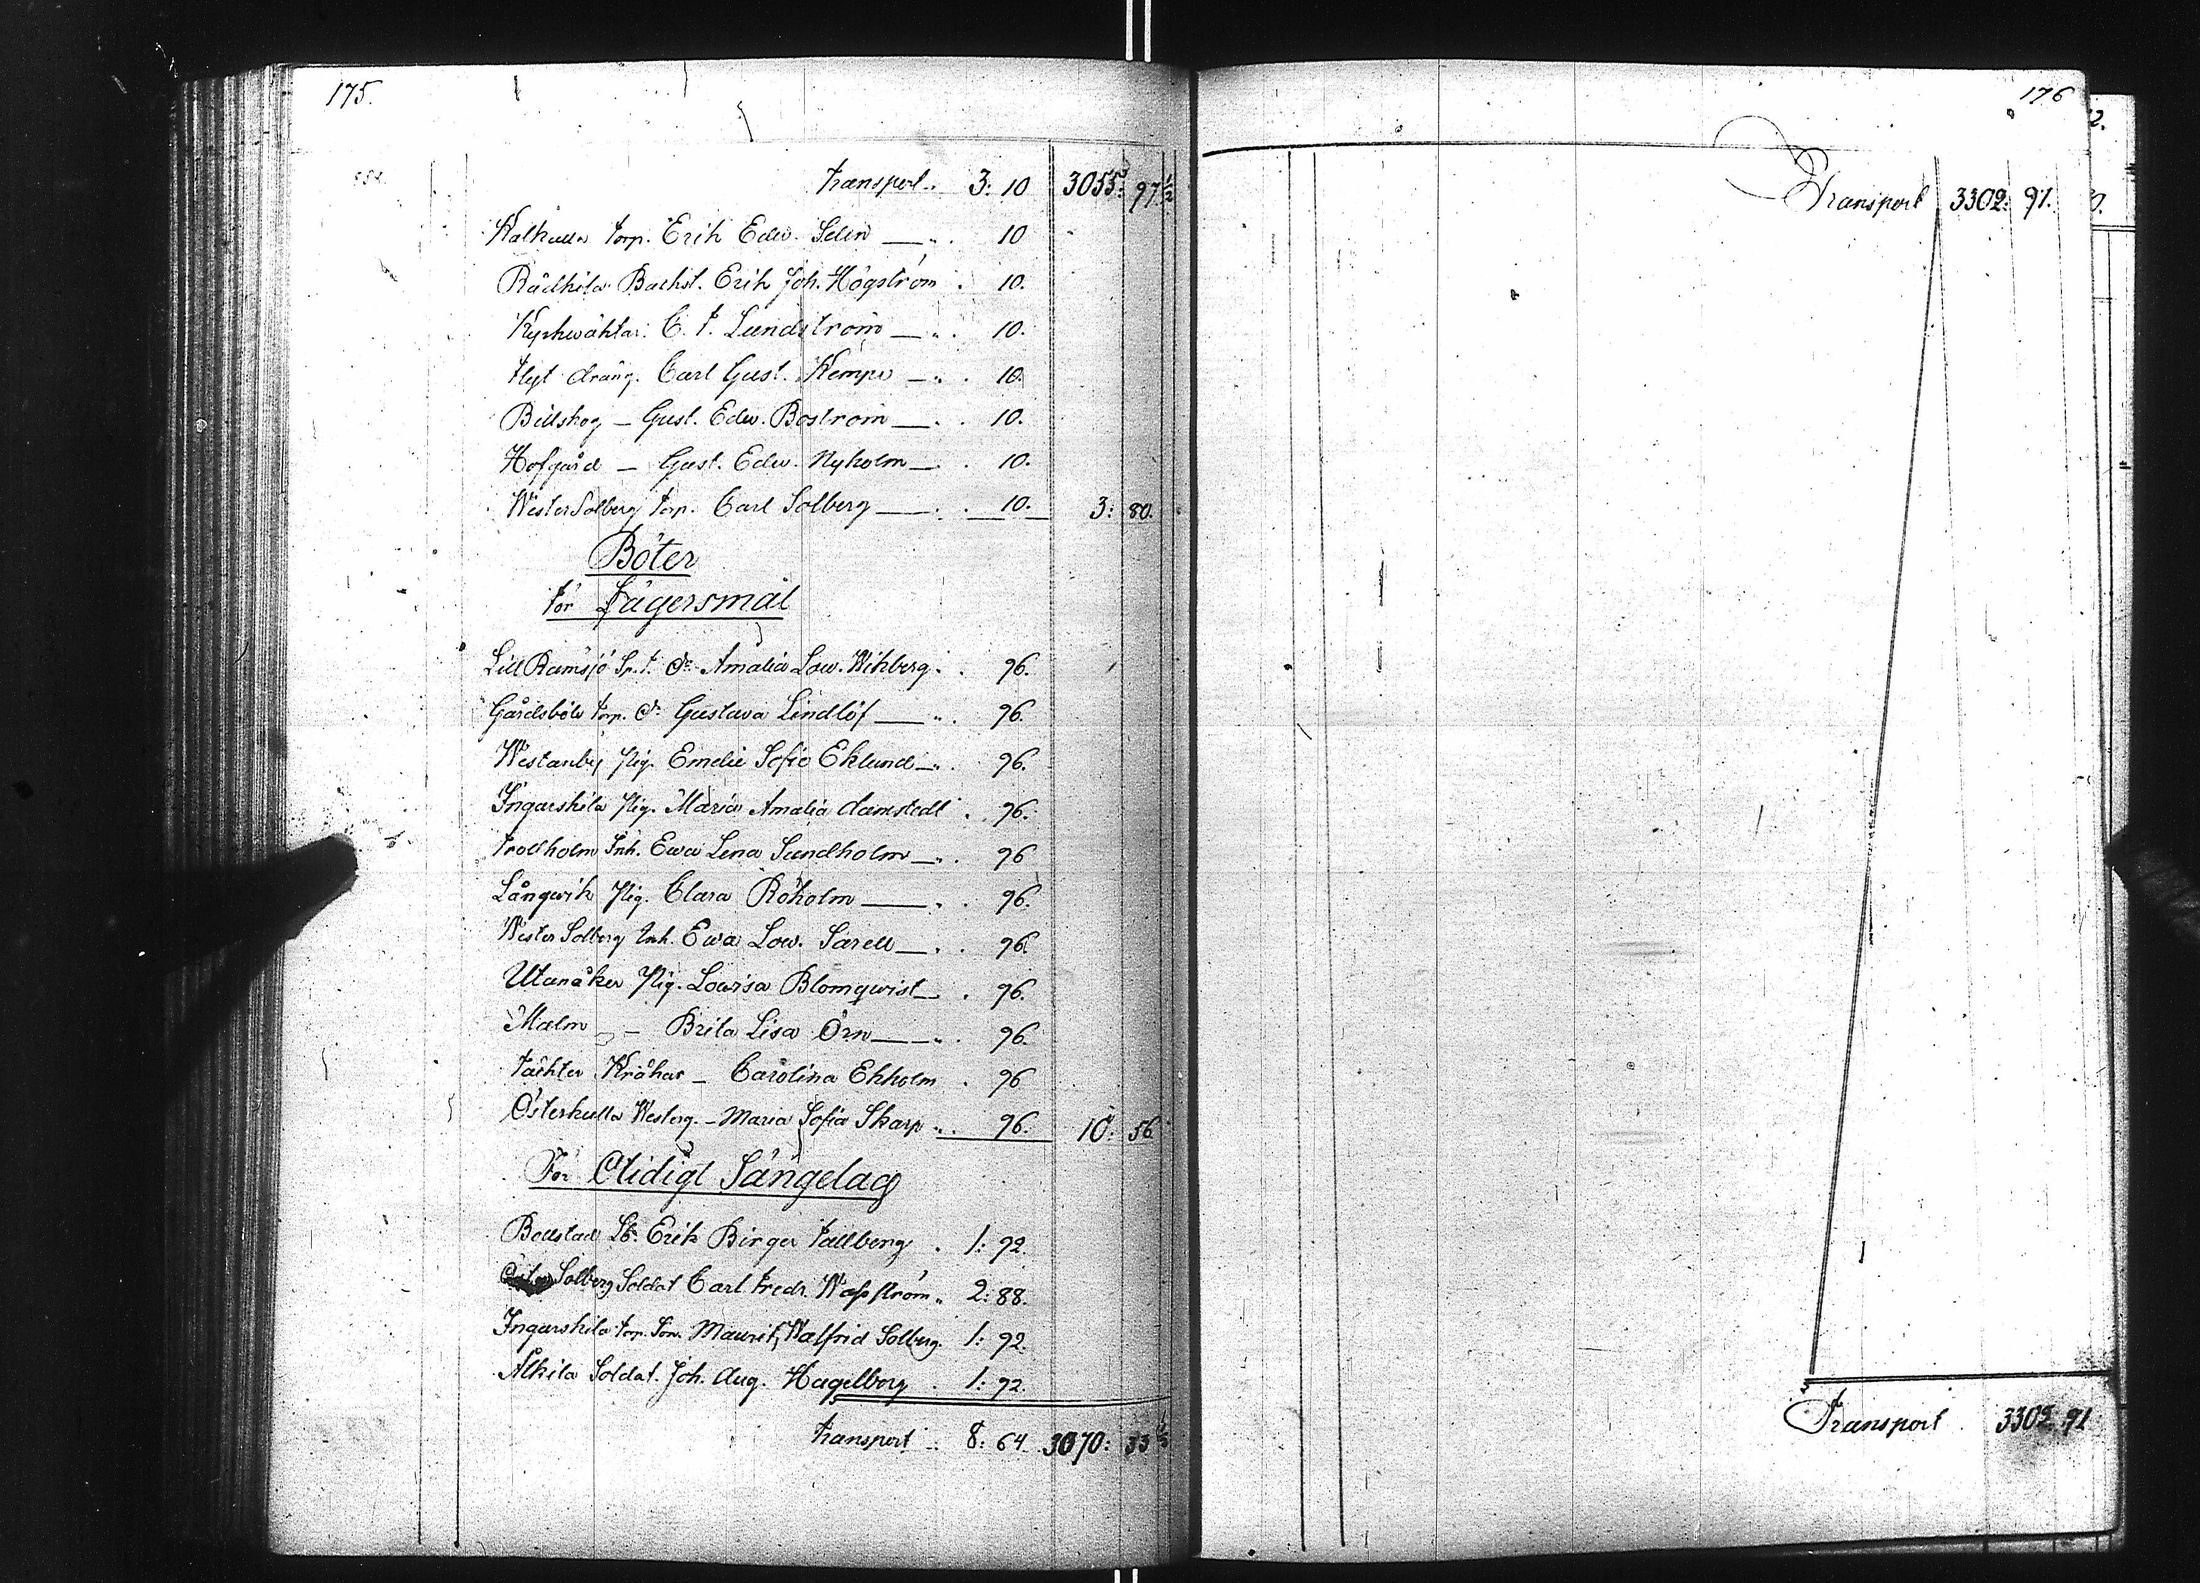 175.
Transport. 3: 10 3055: 97 1/2
Kalkulla torp. Erik Edw. Selin — 10
Rådkila Backst. Erik Joh. Högström . 10.
Kyrkwäktar. C. F. Lundström — 10.
Flyt dräng. Carl Gust. Kempe — 10.
Billskog — Gust. Edw. Boström — 10.
Hofgård — Gust. Edw. Nyholm — 10.
WesterSolberg torp. Carl Solberg — 10. 3: 80.
Böter
för Lägersmål
Lill Ramsjö Sp. t. dr Amalia Low. Wikberg . 96.
Gårdsböle torp. dr Gustava Lindlöf — 96.
Westanby Pig. Emelie Sofie Eklund — 96.
Ingarskila Pig. Maria Amalia Damstedt . 96.
Trollholm Inh. Ewa Lena Sundholm — 96
Långwik Pig. Clara Röholm — 96.
Wester Solberg Inh. Ewa Low. Sarell — 96.
Utanåker Pig. Lowisa Blomqwist — 96.
Malm — Brita Lisa Örn — 96.
Täkter Kråkas — Carolina Ekholm . 96
Österkulla Westerg. — Maria Sofia Skarp . 96. 10: 56
För Otidigt Sängelag
Bollstad Erik Birger Tallberg . 1: 92.
Solberg Soldat Carl Fredr. Wassström . 2: 88.
Ingarskila torp. Son. Maurits Walfrid Solberg. 1: 92.
Alkila Soldat. Joh. Aug. Hagelborg . 1: 92.
Transport . 8: 64. 3070: 33 1/2
176
Transport 3302: 91.
Transport . 3302: 91